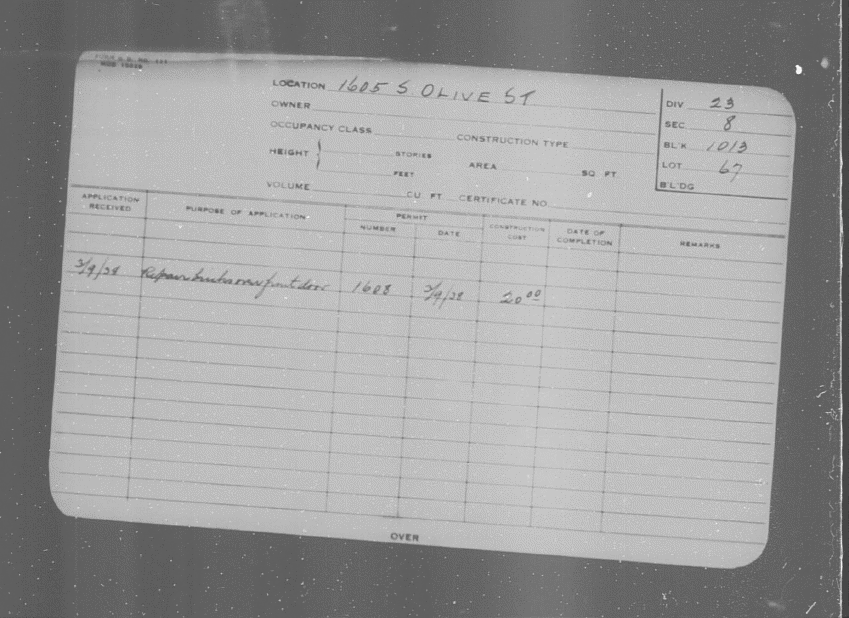 LOCATION 1605 S OLIVE ST
OWNER
OCCUPANCY CLASS CONSTRUCTION TYPE
HEIGHT } STORIES
FEET
AREA SQ. FT.
VOLUME CU FT CERTIFICATE NO.
DIV 23
SEC 8
BL'K 1013
LOT 67
B'L'DG
APPLICATION RECEIVED PURPOSE OF APPLICATION PERMIT NUMBER DATE CONSTRUCTION COST DATE OF COMPLETION REMARKS
3/9/38 Repair bricks over front door 1608 3/9/38 20 00
OVER